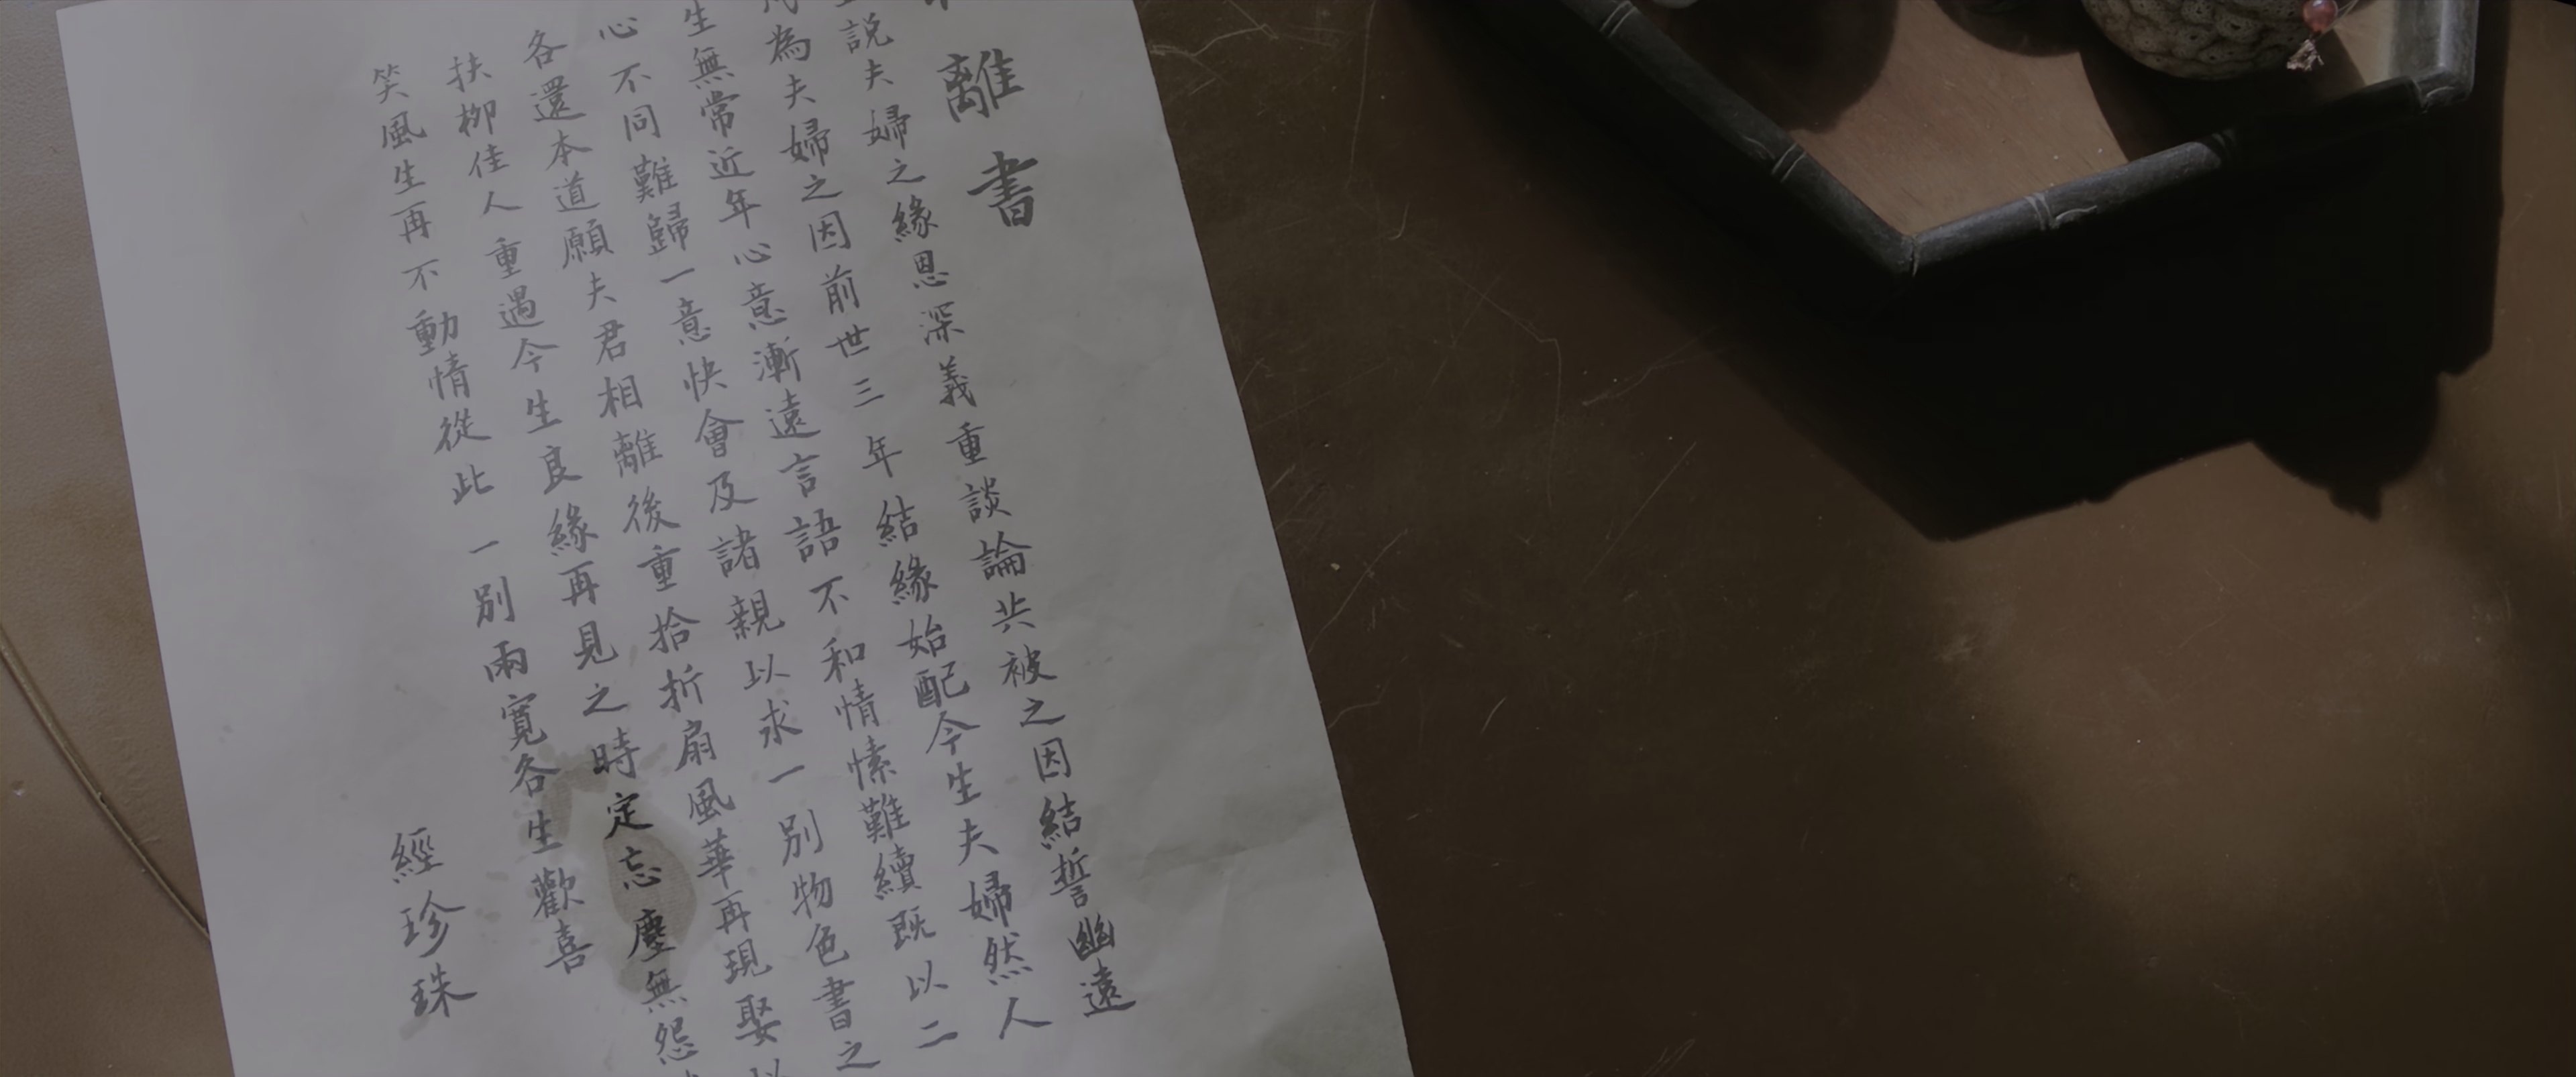 離書
說夫婦之緣恩深義重談論共被之因結誓幽遠
為夫婦之因前世三年結緣始配今生夫婦然人
生無常近年心意漸遠言語不和情愫難續既以二
心不同難歸一意快會及諸親以求一別物色書之
各還本道願夫君相離後重拾折扇風華再現娶
扶柳佳人重遇今生良緣再見之時定忘塵無怨
笑風生再不動情從此一別兩寬各生歡喜
經珍珠